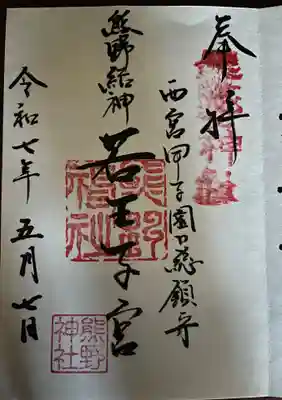 奉拝
西宮甲子園口
若王子宮
熊野結神
令和七年五月七日
熊野神社